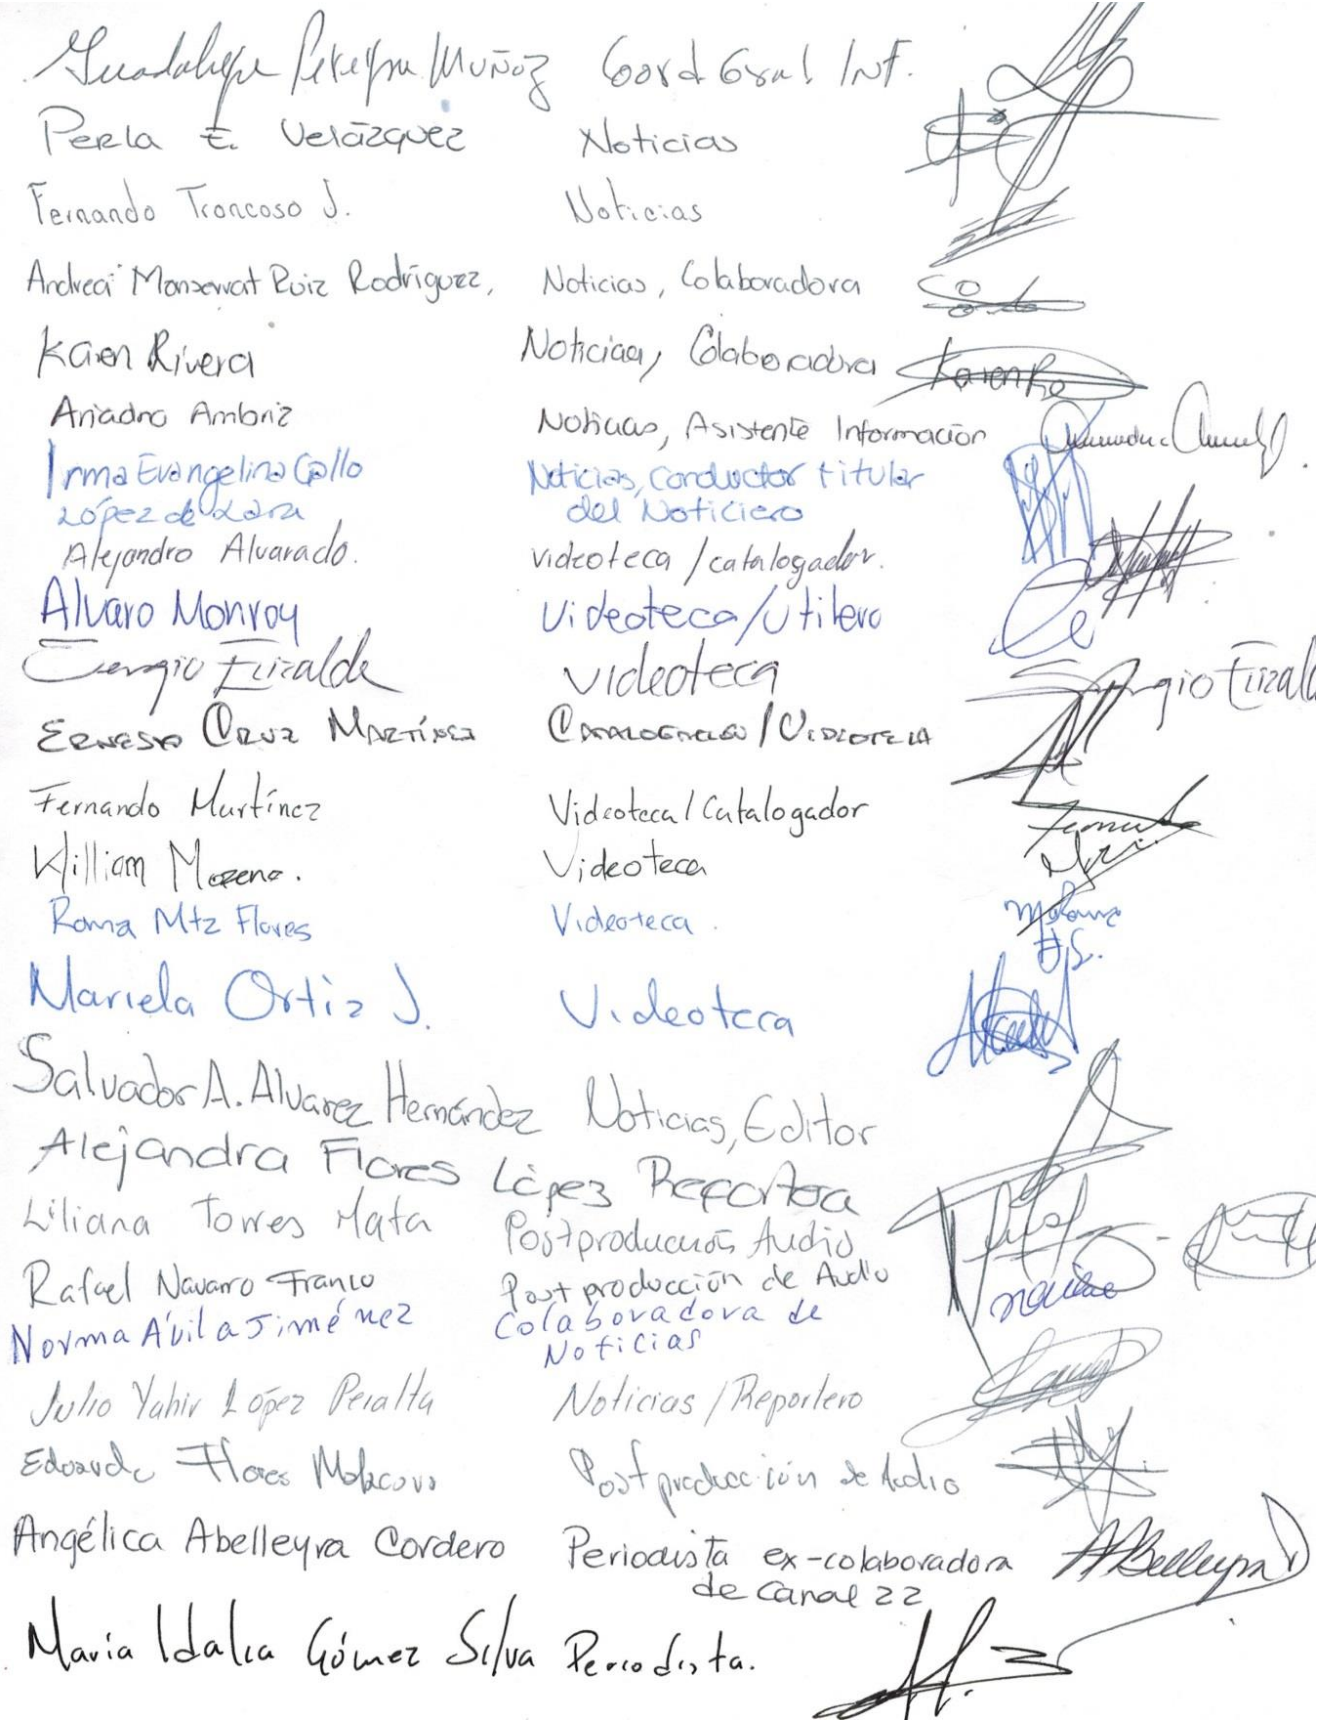 Guadalupe Pereyra Muñoz Coord Gral Inf.
Perla E. Velázquez Noticias
Fernando Troncoso J. Noticias
Andrea Monserrat Ruiz Rodríguez, Noticias, Colaboradora
Karen Rivera Noticias, Colaboradora Karen R
Ariadna Ambriz Noticias, Asistente Información
Irma Evangelina Gallo Noticias, conductor titular
López de Lara del Noticiero
Alejandro Alvarado. videoteca / catalogador.
Alvaro Monroy Videoteca/Utilero
Sergio Elizalde videoteca Sergio Elizald
Ernesto Cruz Martínez Catalogación / Videoteca
Fernando Martínez Videoteca / Catalogador
William Moreno. Videoteca
Roma Mtz Flores Videoteca.
Mariela Ortiz J. Videoteca
Salvador A. Alvarez Hernández Noticias, Editor
Alejandra Flores López Reportera
Liliana Torres Mata Postproducción Audio
Rafael Navarro Franco Postproducción de Audio
Norma Ávila Jiménez Colaboradora de
Noticias
Julio Yahir López Peralta Noticias / Reportero
Eduardo Flores Postproducción de Audio
Angélica Abelleyra Cordero Periodista ex-colaboradora ABelleyra
de Canal 22
María Idalia Gómez Silva Periodista.